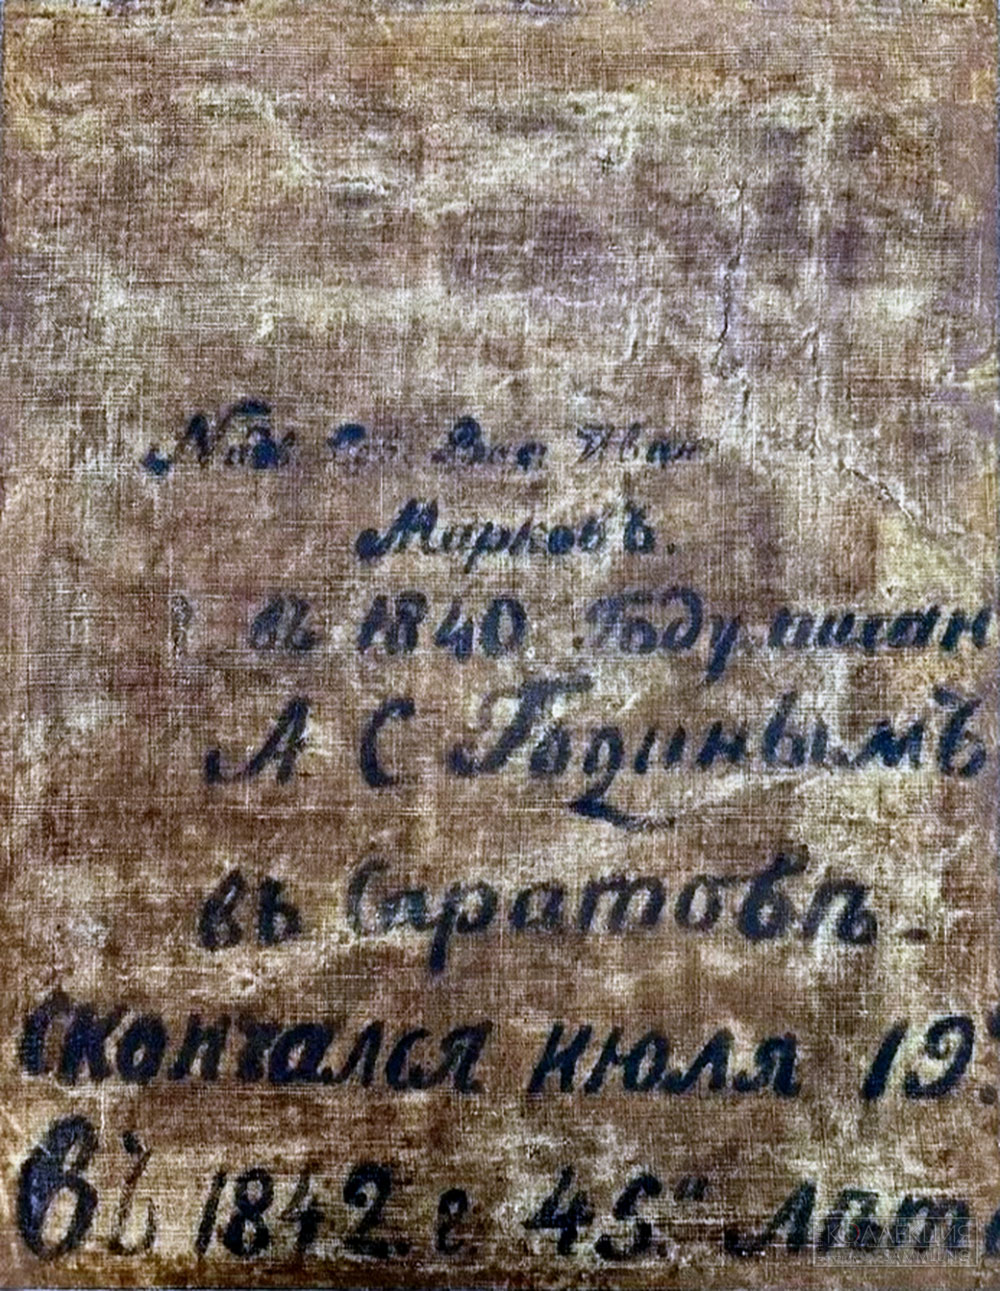 Надв. Сов. Вас. Иван
Марковъ.
въ 1840 Году писан
А С Годинымъ
въ Саратовѣ.
скончался июля 19.
Въ 1842. г. 45." лѣт
КОЛЛЕКЦИЯ